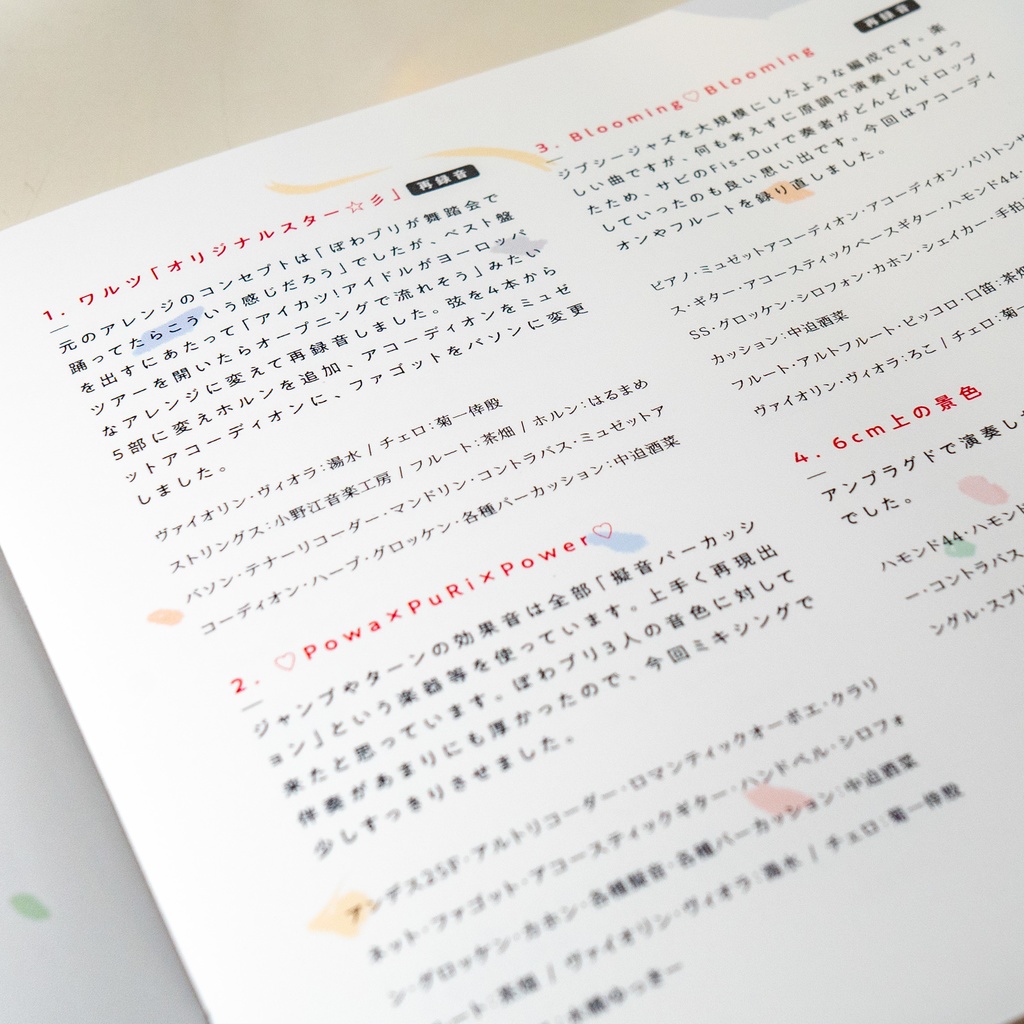 1. ワルツ「オリジナルスター☆彡」 再録音
元のアレンジのコンセプトは「ぽわプリが舞踏会で
踊ってたらこういう感じだろう」でしたが、ベスト盤
を出すにあたって「アイカツ!アイドルがヨーロッパ
ツアーを開いたらオープニングで流れそう」みたい
なアレンジに変えて再録音しました。弦を4本から
5部に変えホルンを追加、アコーディオンをミュゼ
ットアコーディオンに、ファゴットをバソンに変更
しました。
ヴァイオリン・ヴィオラ:湯水 / チェロ:菊一倖殷
ストリングス:小野江音楽工房 / フルート:茶畑 / ホルン:はるまめ
バソン・テナーリコーダー・マンドリン・コントラバス・ミュゼットア
コーディオン・ハープ・グロッケン・各種パーカッション:中迫酒菜
2. ♡Powa×PuRi×Power♡
ジャンプやターンの効果音は全部「擬音パーカッシ
ョン」という楽器等を使っています。上手く再現出
来たと思っています。ぽわプリ3人の音色に対して
伴奏があまりにも厚かったので、今回ミキシングで
少しすっきりさせました。
アンデス25F・アルトリコーダー・ロマンティックオーボエ・クラリ
ネット・ファゴット・アコースティックギター・ハンドベル・シロフォ
ン・グロッケン・カホン・各種擬音・各種パーカッション:中迫酒菜
ート:茶畑 / ヴァイオリン・ヴィオラ:湯水 / チェロ:菊一倖殷
再録音
3. Blooming♡Blooming
ジプシージャズを大規模にしたような編成です。楽
しい曲ですが、何も考えずに原調で演奏してしまっ
たため、サビのFis-Durで奏者がどんどんドロップ
していったのも良い思い出です。今回はアコーディ
オンやフルートを録り直しました。
ピアノ・ミュゼットアコーディオン・アコーディオン・バリトンサ
ス・ギター・アコースティックベースギター・ハモンド44・
SS・グロッケン・シロフォン・カホン・シェイカー・手拍
カッション:中迫酒菜
フルート・アルトフルート・ピッコロ・口笛:茶畑
ヴァイオリン・ヴィオラ:ろこ / チェロ:菊一
4. 6cm上の景色
アンプラグドで演奏し
でした。
ハモンド44・ハモンド
ー・コントラバス・
ングル・スプリ